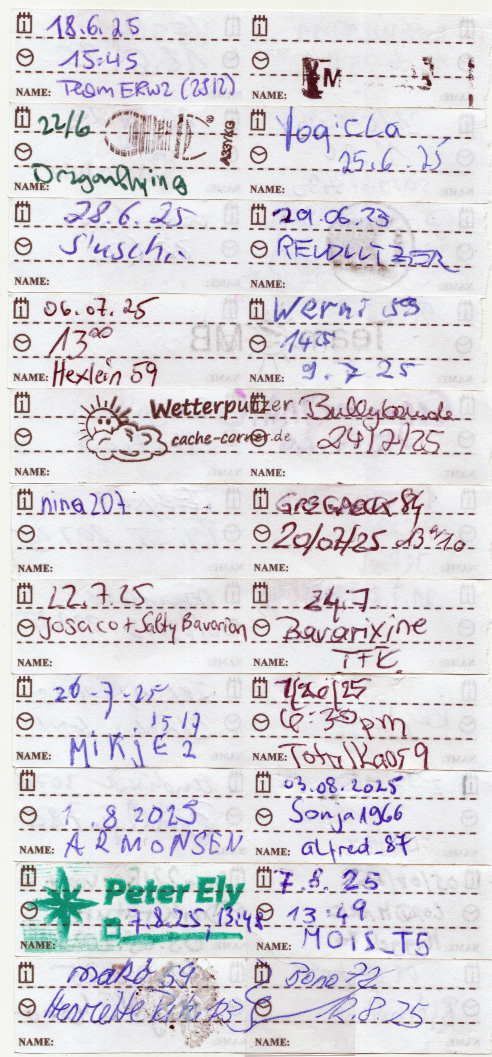 18.6.25
15:45
NAME: Team ERWZ (2512)
NAME:
22/6
A33YKG
NAME: Dragonflying
YogiCLa
25.6.25
NAME:
28.6.25
NAME:
29.06.25
NAME:
06.07.25
13⁰⁰
NAME: Hexlein 59
Werni 59
14²⁵
NAME: 9.7 25
Wetterputzer
cache-corner.de
NAME:
24/7/25
NAME:
nina207
NAME:
20/07/25
NAME:
22.7.25
Josaco + Salty Bavarian
NAME:
24.7
Bavarixine
NAME: TFE
26-7-25
15 17
NAME: MIKJE 2
7/26/25
6:30pm
NAME: TotalKaos9
1.8 2025
NAME: ARMONSEN
03.08.2025
Sonja1966
NAME: alfred_87
Peter Ely
7.8.25, 13:48
NAME:
7.8.25
13:49
NAME: MOIS_T5
makó 59
Henriette
NAME:
Bono72
12.8.25
NAME: